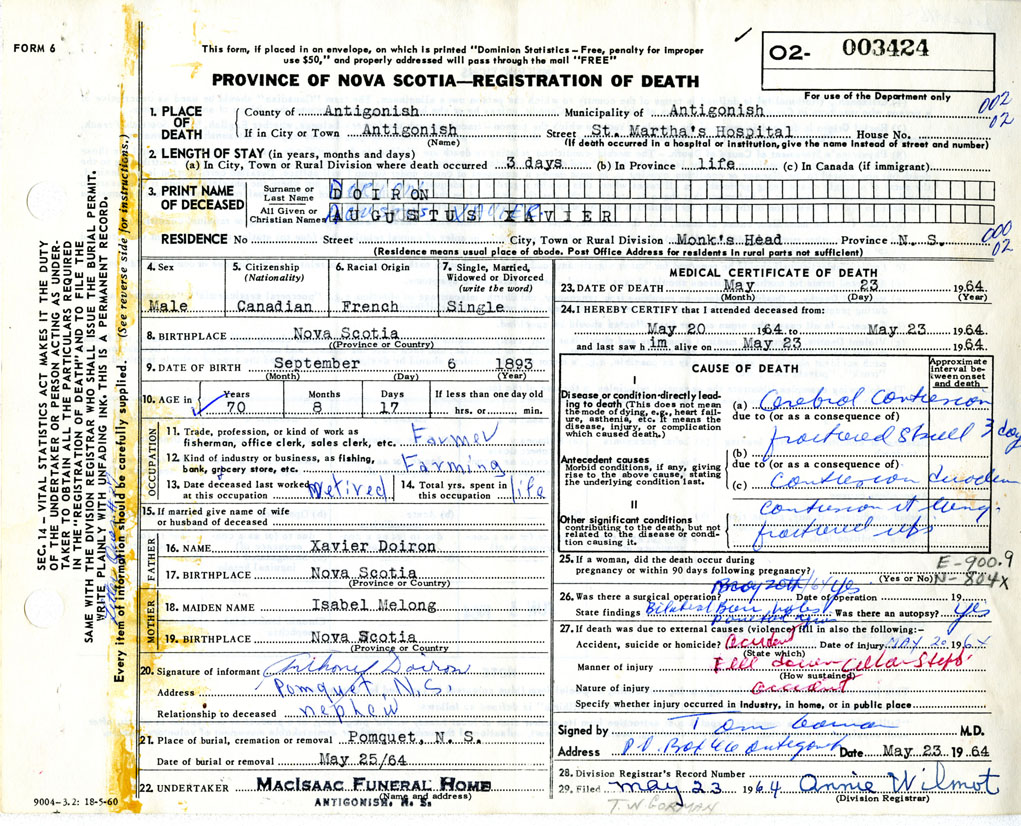 FORM 6
This form, if placed in an envelope, on which is printed "Dominion Statistics – Free, penalty for improper
use $50," and properly addressed will pass through the mail "FREE"
PROVINCE OF NOVA SCOTIA—REGISTRATION OF DEATH
02- 003424
For use of the Department only
002
02
1. PLACE OF DEATH
County of Antigonish Municipality of Antigonish
If in City or Town Antigonish Street St. Martha's Hospital House No.
(Name) (If death occurred in a hospital or institution, give the name instead of street and number)
2. LENGTH OF STAY (in years, months and days)
(a) In City, Town or Rural Division where death occurred 3 days (b) In Province life (c) In Canada (if immigrant)
3. PRINT NAME OF DECEASED
Surname or Last Name DOIRON
All Given or Christian Names AUGUSTUS XAVIER
RESIDENCE No Street City, Town or Rural Division Monk's Head Province N. S.
(Residence means usual place of abode. Post Office Address for residents in rural parts not sufficient)
000
02
4. Sex
Male
5. Citizenship (Nationality)
Canadian
6. Racial Origin
French
7. Single, Married, Widowed or Divorced (write the word)
Single
8. BIRTHPLACE Nova Scotia
((Province or Country)
9. DATE OF BIRTH September 6 1893
(Month) (Day) (Year)
10. AGE in Years Months Days If less than one day old
70 8 17 hrs. or min.
OCCUPATION
11. Trade, profession, or kind of work as
fisherman, office clerk, sales clerk, etc. Farmer
12. Kind of industry or business, as fishing,
bank, grocery store, etc. Farming
13. Date deceased last worked at this occupation Retired
14. Total yrs. spent in this occupation life
15. If married give name of wife
or husband of deceased
FATHER
16. NAME Xavier Doiron
17. BIRTHPLACE Nova Scotia
(Province or Country)
MOTHER
18. MAIDEN NAME Isabel Melong
19. BIRTHPLACE Nova Scotia
(Province or Country)
20. Signature of informant Anthony Doiron
Address Pomquet, N.S.
Relationship to deceased nephew
21. Place of burial, cremation or removal Pomquet, N. S.
Date of burial or removal May 25/64
22. UNDERTAKER MACISAAC FUNERAL HOME
(Name and address)
ANTIGONISH, N. S.
9004-3.2: 18-5-60
MEDICAL CERTIFICATE OF DEATH
23. DATE OF DEATH May 23 1964
(Month) (Day) (Year)
24. I HEREBY CERTIFY that I attended deceased from:
May 20 1964 to May 23 1964
and last saw him alive on May 23 1964
CAUSE OF DEATH
Approximate interval between onset and death
I
Disease or condition directly leading to death (This does not mean the mode of dying, e.g., heart failure, asthenia, etc. It means the disease, injury, or complication which caused death.)
(a) Cerebral Contusion
due to (or as a consequence of)
fractured Skull 3 day
Antecedent causes
Morbid conditions, if any, giving rise to the above cause, stating the underlying condition last.
(b)
due to (or as a consequence of)
(c) Contusion
II
Other significant conditions
contributing to the death, but not related to the disease or condition causing it.
Contusion rt lung.
fractured ribs
25. If a woman, did the death occur during
pregnancy or within 90 days following pregnancy? (Yes or No)
E-900.9
N-804X
26. Was there a surgical operation? Yes Date of operation May 20th/64 19
State findings Bilateral Burr holes Was there an autopsy? Yes
27. If death was due to external causes (violence) fill in also the following:-
Accident, suicide or homicide? Accident Date of injury MAY 20 1964
(State which)
Manner of injury Fell down Cellar Steps
(How sustained)
Nature of injury accident
Specify whether injury occurred in industry, in home, or in public place
Signed by T W Gorman M.D.
Address P.O. Box 46 Antigonish Date May 23 1964
28. Division Registrar's Record Number
29. Filed May 23 1964 Annie Wilmot
(Division Registrar)
T. W. GORMAN
SEC. 14 – VITAL STATISTICS ACT MAKES IT THE DUTY
OF THE UNDERTAKER OR PERSON ACTING AS UNDERTAKER
TO OBTAIN ALL THE PARTICULARS REQUIRED
IN THE "REGISTRATION OF DEATH" AND TO FILE THE
SAME WITH THE DIVISION REGISTRAR WHO SHALL ISSUE THE BURIAL PERMIT.
WRITE PLAINLY WITH UNFADING INK. THIS IS A PERMANENT RECORD.
Every item of information should be carefully supplied. (See reverse side for instructions.)